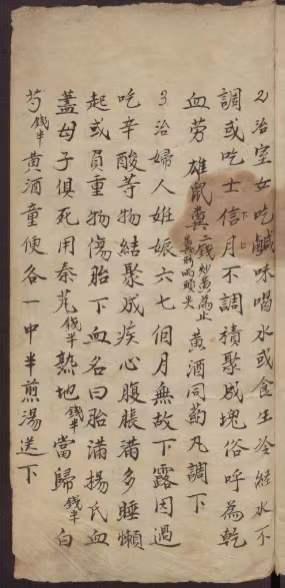 2治室女吃鹹味喝水或食生冷経水不
調或吃士信月不調積聚成塊俗呼為乾
血劳 雄鼠糞二戋炒黄為止糞兩頭尖 黄酒同药凡調下
3治婦人姙娠六七個月無故下露因過
吃辛酸等物結聚成疾心腹脹滿多睡懶
起或負重物傷胎下血名曰胎滿揚氏血
蓋母子俱死用秦艽戋半熟地戋半當歸戋半白
芍戋半黄酒童便各一中半煎湯送下